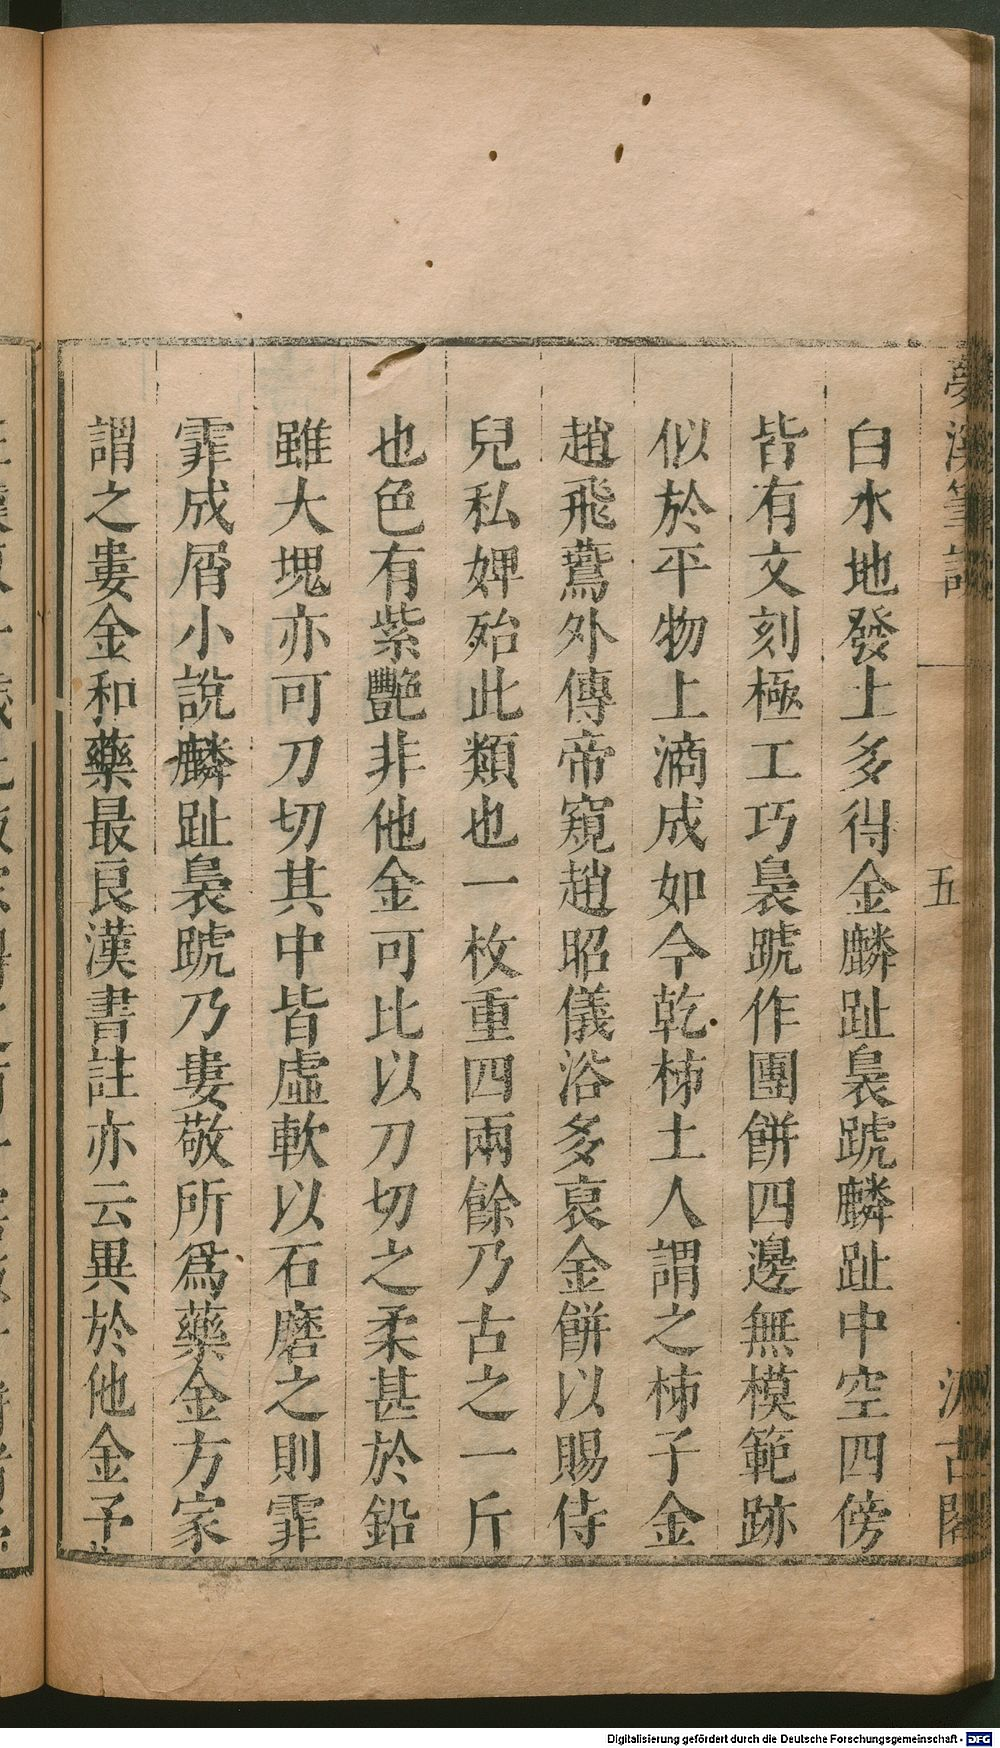 夢溪筆談
五
汲古閣
白水地發土多得金麟趾褭蹏麟趾中空四傍
皆有文刻極工巧褭蹏作團餅四邊無模範跡
似於平物上滴成如今乾柹土人謂之柹子金
趙飛鷰外傳帝窺趙昭儀浴多裒金餅以賜侍
兒私婢殆此類也一枚重四兩餘乃古之一斤
也色有紫艷非他金可比以刀切之柔甚於鉛
雖大塊亦可刀切其中皆虛軟以石磨之則霏
霏成屑小說麟趾褭蹏乃婁敬所爲藥金方家
謂之婁金和藥最良漢書註亦云異於他金予
Digitalisierung gefördert durch die Deutsche Forschungsgemeinschaft - DFG